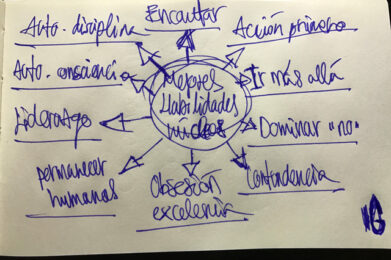 Auto-disciplina
Encantar
Acción primero
Auto-consciencia
Mejores
Habilidades
Ir más allá
Liderazgo
Dominar "no"
Permanecer
humanos
Obsesión
excelencia